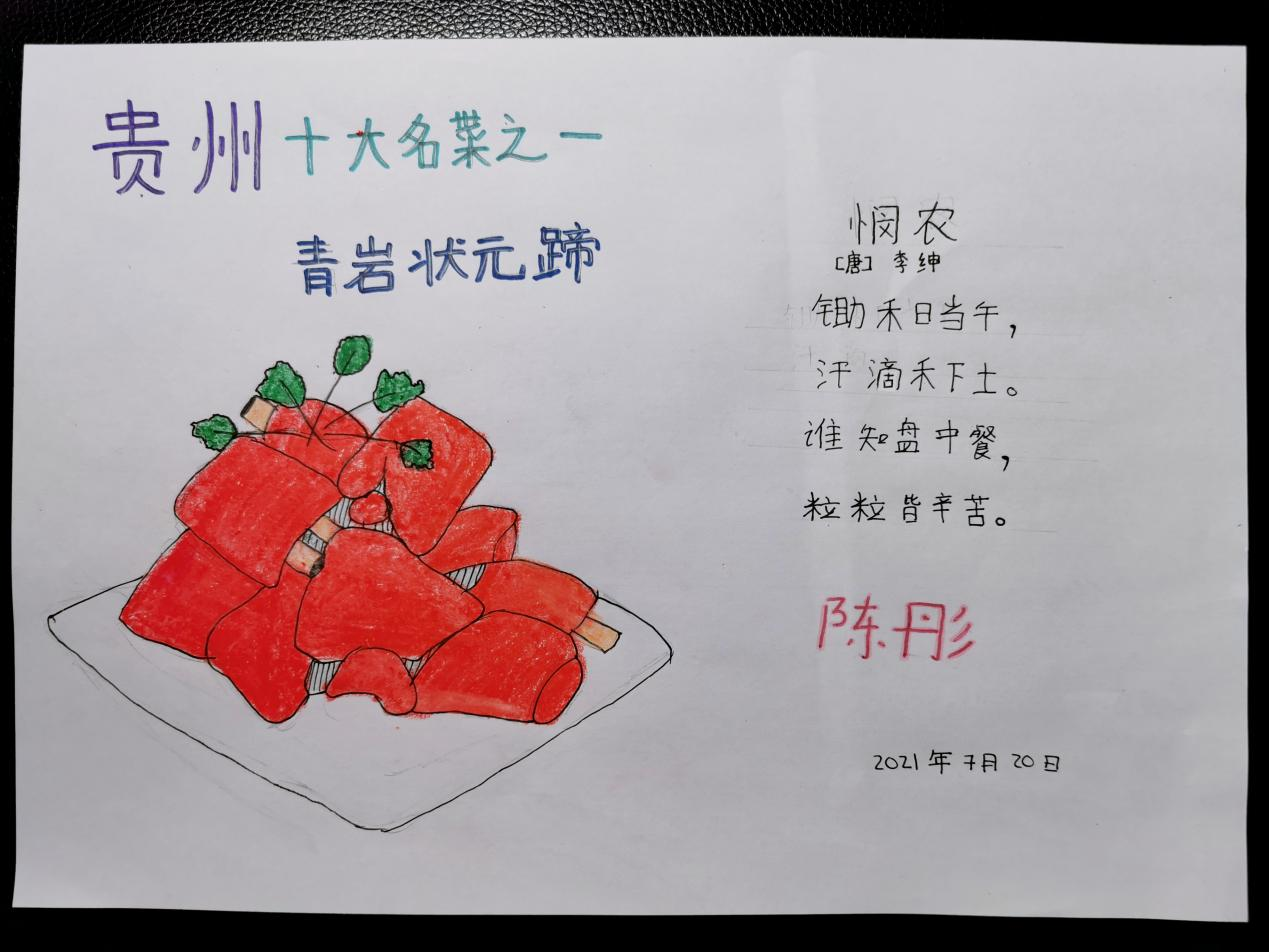 贵州十大名菜之一
青岩状元蹄
悯农
[唐] 李绅
锄禾日当午，
汗滴禾下土。
谁知盘中餐，
粒粒皆辛苦。
陈彤
2021年7月20日